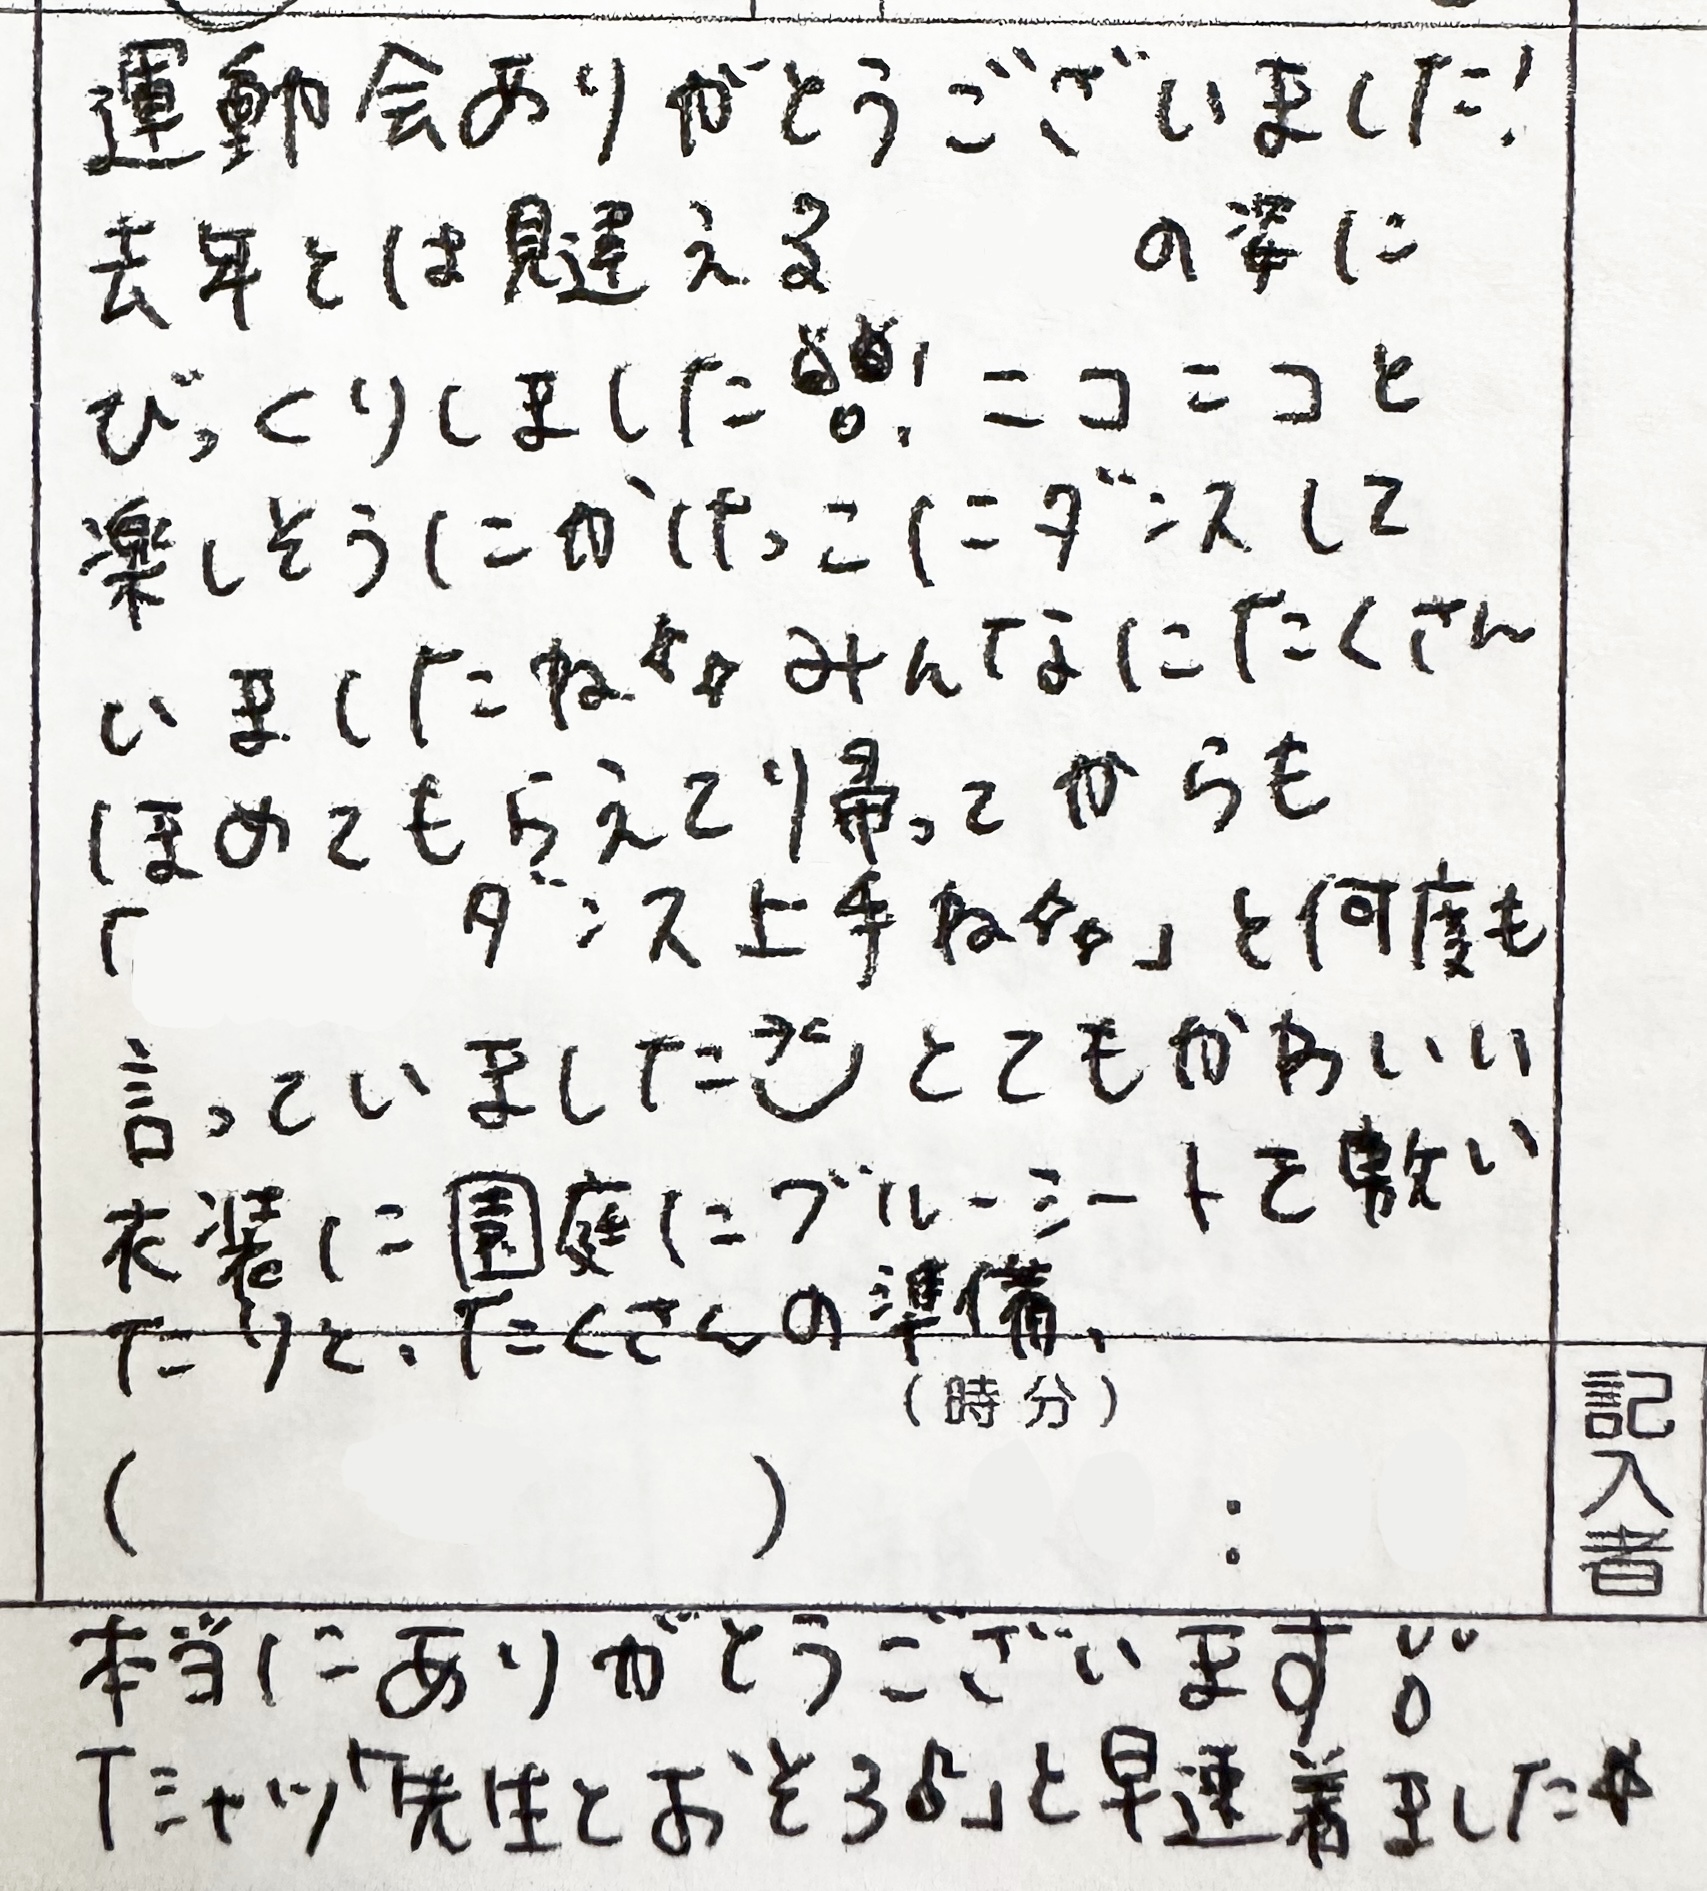 運動会ありがとうございました!
去年とは見違える の姿に
びっくりしました!ニコニコと
楽しそうにかけっこにダンスして
いましたね☆☆みんなにたくさん
ほめてもらえており帰ってからも
「 ダンス上手ね☆☆」と何度も
言っていました とてもかわいい
衣装に園庭にブルーシートを敷い
たりと、たくさんの準備、
(時分)
( ) :
記入者
本当にありがとうございます
Tシャツ「先生とおそろ♪」と早速着ました☆